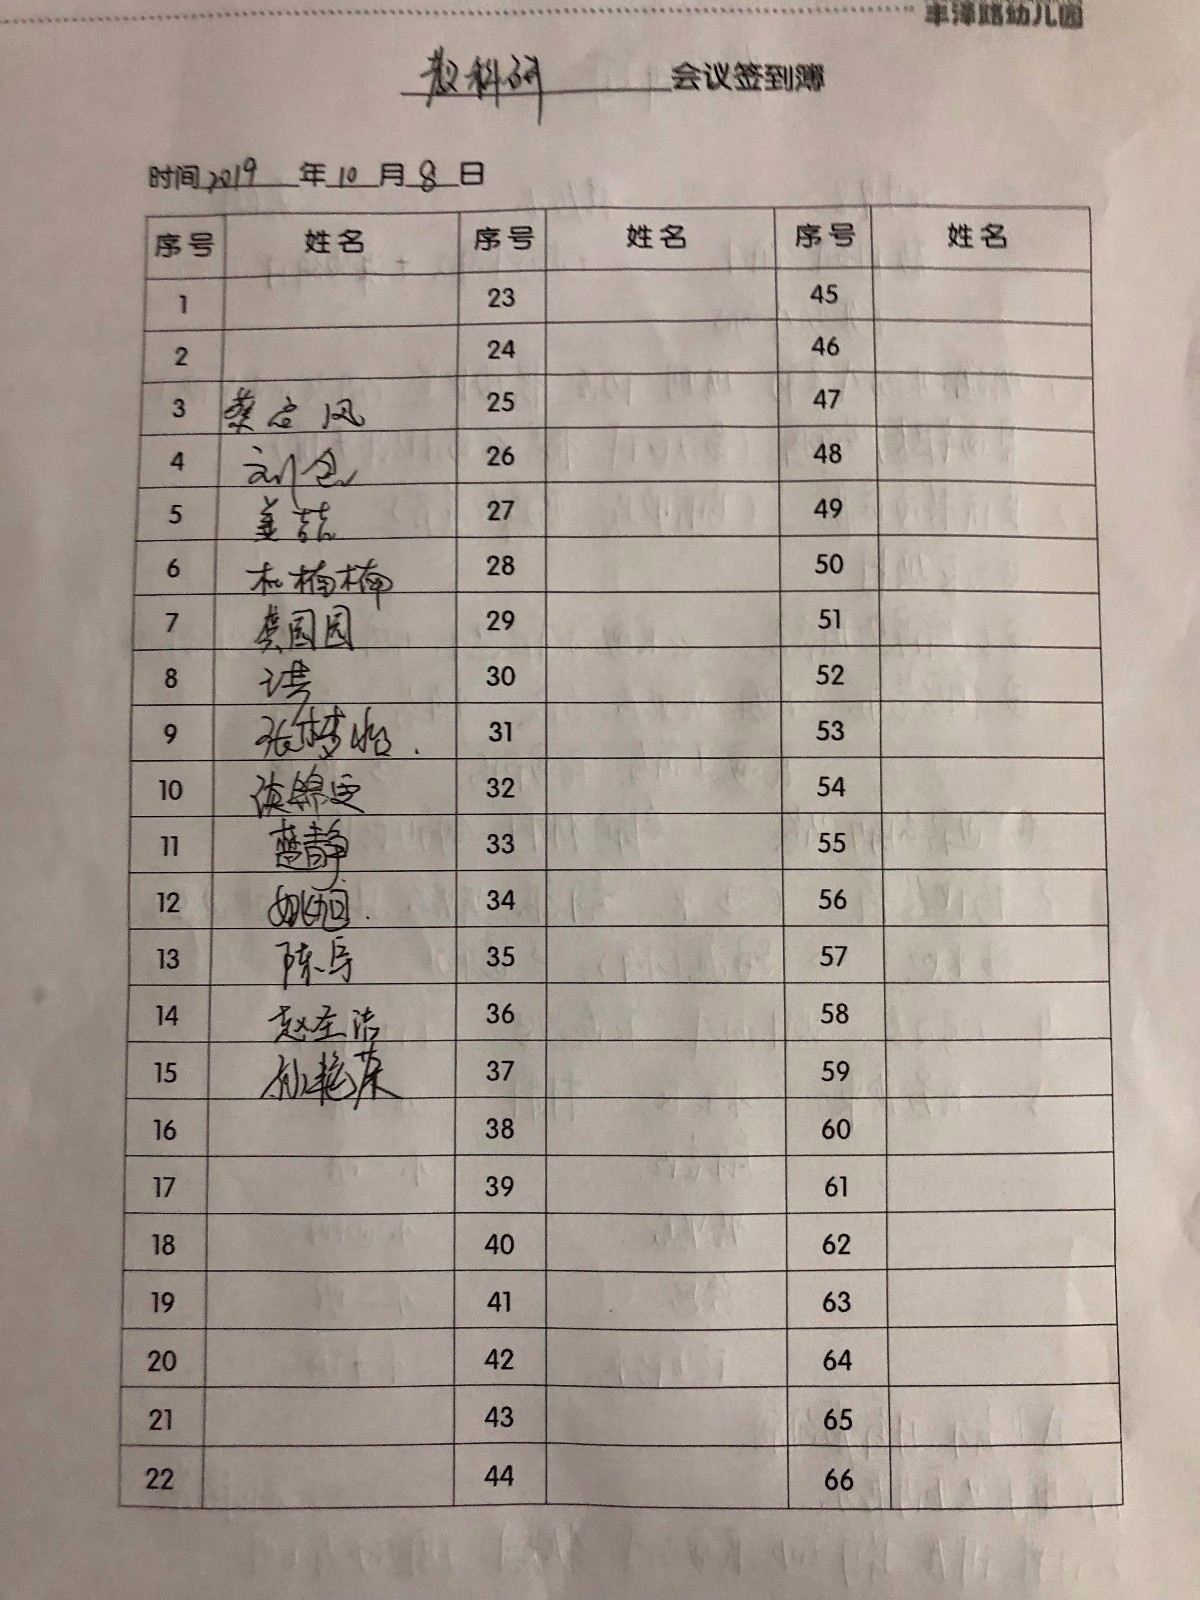 丰泽路幼儿园
教科研 会议签到簿
时间 2019 年 10 月 8 日
序号 姓名 序号 姓名 序号 姓名
1 23 45
2 24 46
3 蔡 凤 25 47
4 刘 26 48
5 姜喆 27 49
6 楠楠 28 50
7 龚园园 29 51
8 30 52
9 张梦怡 31 53
10 谈锦 32 54
11 楚静 33 55
12 姚 34 56
13 陈 35 57
14 赵 洁 36 58
15 孙艳荣 37 59
16 38 60
17 39 61
18 40 62
19 41 63
20 42 64
21 43 65
22 44 66